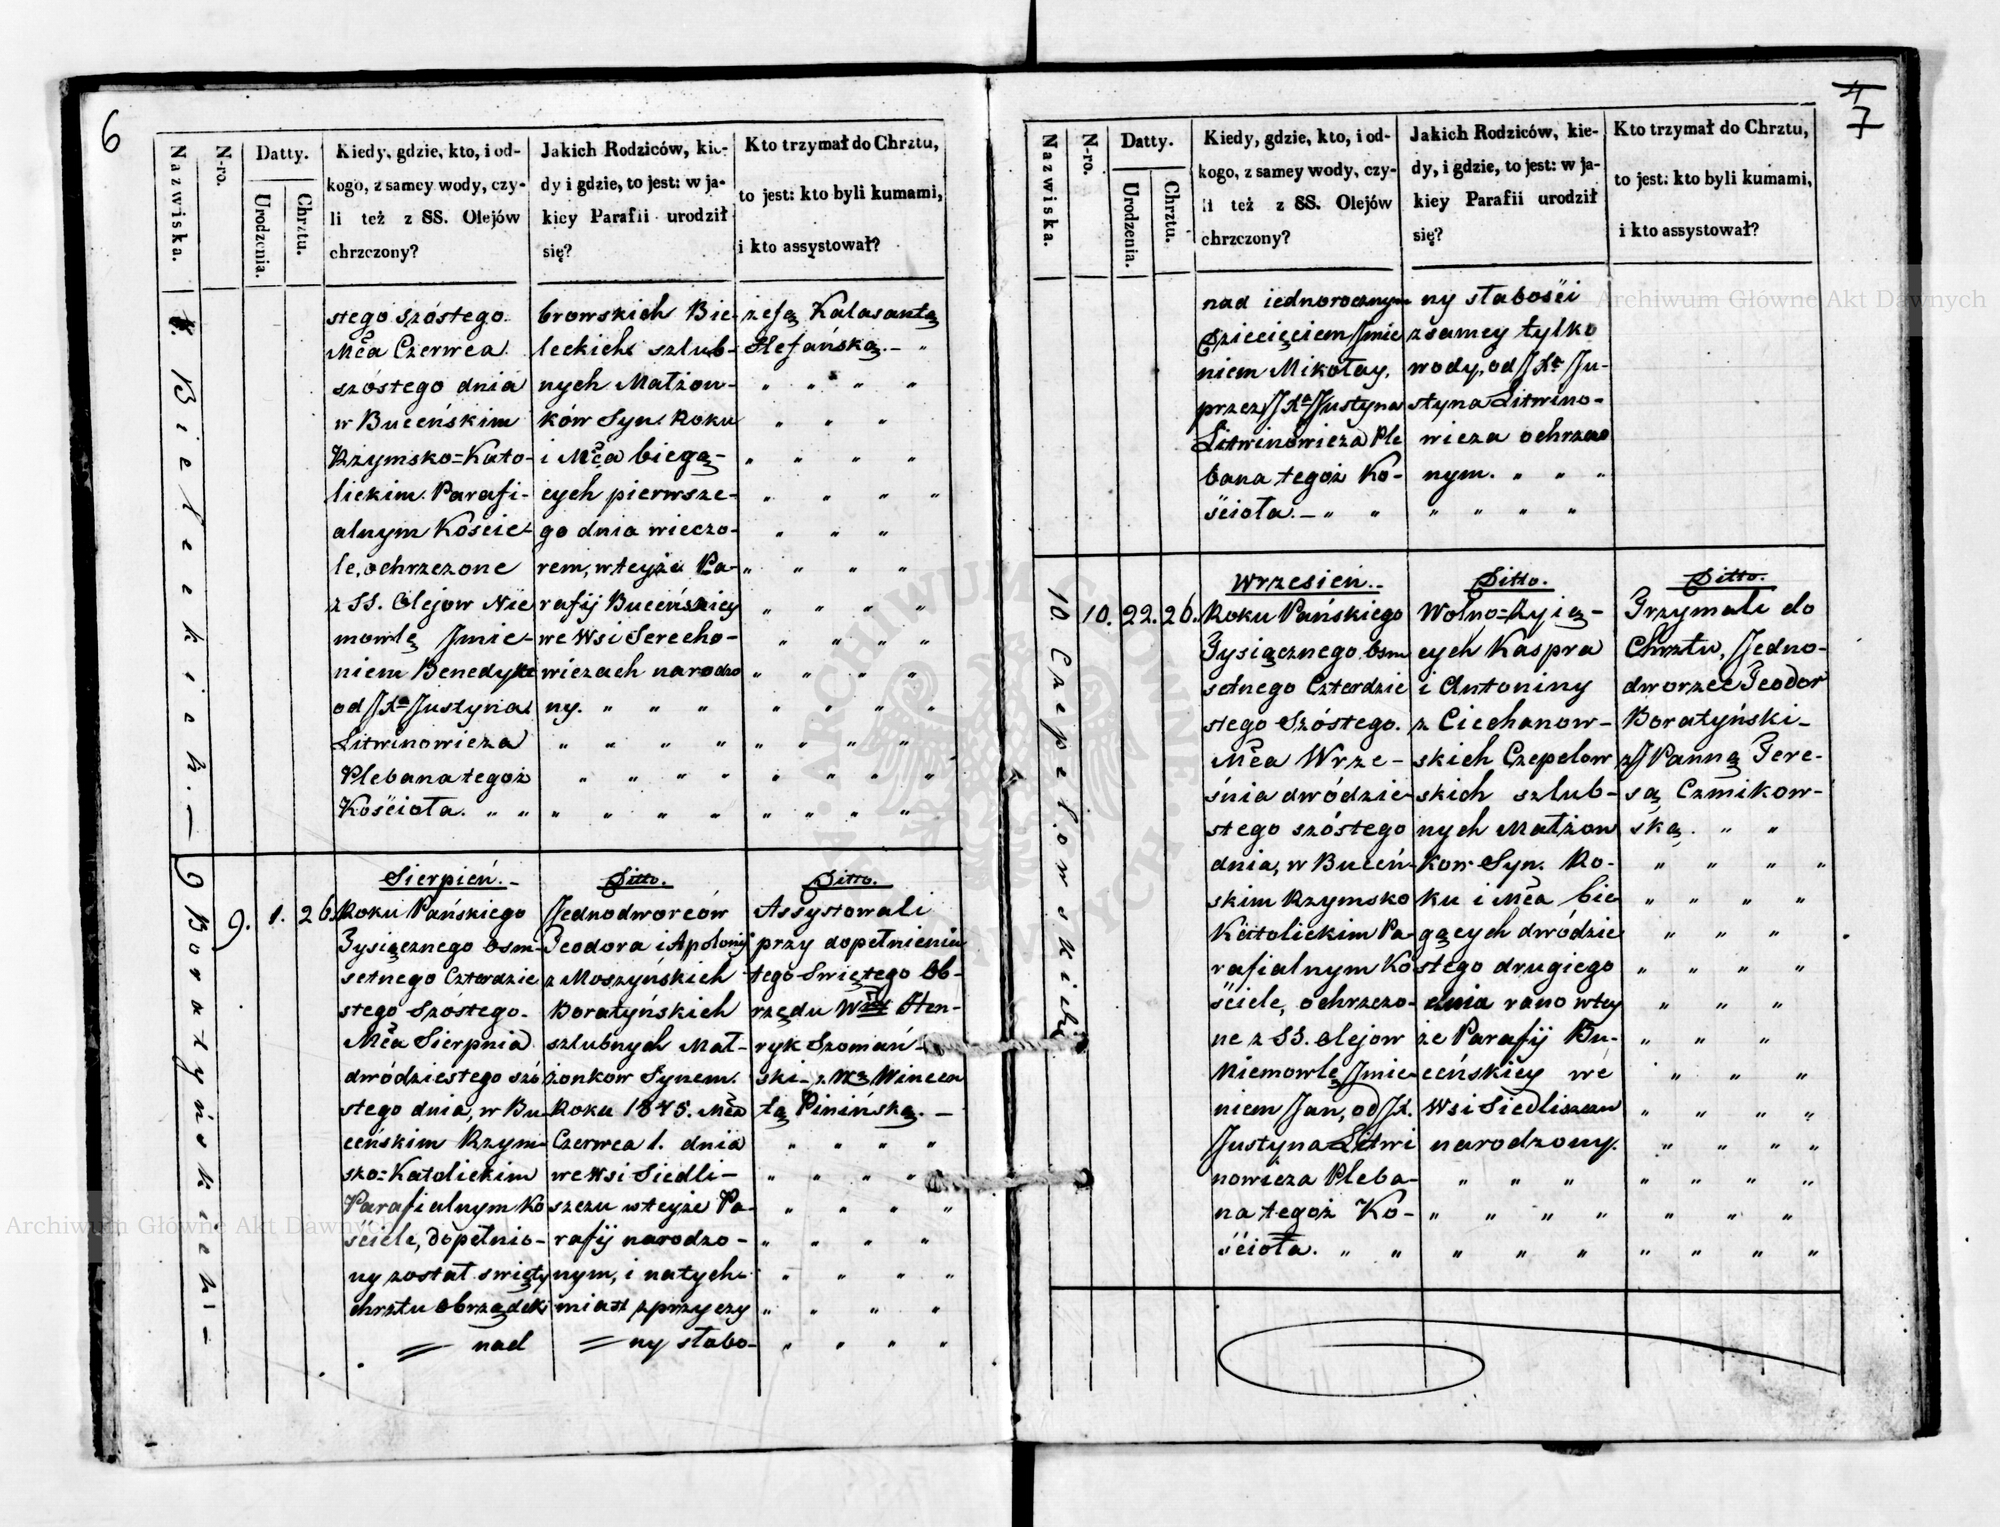 6
Nazwiska.
N-ro.
Datty.
Urodzenia.
Chrztu.
Kiedy, gdzie, kto, i od-
kogo, z samey wody, czy-
li też z SS. Olejów
chrzczony?
Jakich Rodziców, kie-
dy i gdzie, to jest: w ja-
kiey Parafii urodził
się?
Kto trzymał do Chrztu,
to jest: kto byli kumami,
i kto assystował?
Bieleckich. —
stego szóstego.
Mca Czerwca
szóstego dnia
w Buceńskim
Rzymsko=Kato-
lickim Parafi-
alnym Koście-
le, ochrzczone
z SS. Olejow Nie
mowlę Jmie-
niem Benedykt
od JXa Justyna
Litwinowicza
Plebana tegoż
Kościoła. „ „
browskich Bie-
leckich szlub-
nych Małżon-
ków Syn Roku
i Mca biegą-
cych pierwsze-
go dnia wieczo-
rem, w teyże Pa-
rafij Buceńskiey
we Wsi Serecho-
wiczach narodzo
ny. „ „ „
zefą Kalasantą
Stefańską. — „
9 Boratyńskich —
9. 1. 26.
Sierpień. —
Roku Pańskiego
Tysiącznego osm-
setnego Czterdzie
stego Szóstego.
Mca Sierpnia
dwódziestego szó
stego dnia, w Bu
ceńskim Rzym-
sko=Katolickim
Parafialnym Ko
ściele, dopełnio-
ny został święty
chrztu Obrządek
= nad
Ditto.
Jednodworców
Teodora i Apolonij
z Moszyńskich
Boratyńskich
szlubnych Mał-
żonkow Synem.
Roku 1845. Mca
Czerwca 1. dnia
we Wsi Siedli-
szczu w teyże Pa-
rafij narodzo-
nym, i natych-
miast z przyczy
= ny słabo-
Ditto.
Assystowali
przy dopełnieniu
tego Świętego Ob-
rzędu Hen-
ryk Szomań-
ski z Wincen
tą Pinińską. —
7
Nazwiska.
N-ro.
Datty.
Urodzenia.
Chrztu.
Kiedy, gdzie, kto, i od-
kogo, z samey wody, czy-
li też z SS. Olejów
chrzczony?
Jakich Rodziców, kie-
dy, i gdzie, to jest: w ja-
kiey Parafii urodził
się?
Kto trzymał do Chrztu,
to jest: kto byli kumami,
i kto assystował?
nad iednorocznym
Dziecięciem Jmie
niem Mikołay,
przez JXa Justyna
Litwinowicza Ple
bana tegoż Ko-
ścioła. — „ „
ny słabości
z samey tylko
wody, od JXa Ju-
styna Litwino-
wicza ochrzczo
nym. „ „ „
„ „ „ „
10. Czepelowskich
10. 22. 26.
Wrzesień. —
Roku Pańskiego
Tysiącznego osm
setnego Czterdzie
stego Szóstego.
Mca Wrze-
śnia dwódzie-
stego szóstego
dnia, w Buceń-
skim Rzymsko
Katolickim Pa-
rafialnym Ko
ściele, ochrzczo-
ne z SS. Olejow
Niemowlę Jmie
niem Jan, od JX.
Justyna Litwi
nowicza Pleba-
na tegoż Ko-
ścioła. „ „
Ditto.
Wolno=Żyią-
cych Kaspra
i Antoniny
z Ciechanow-
skich Czepelow
skich szlub-
nych Małżon
kow Syn. Ro-
ku i Mca bie
gących dwódzie
stego drugiego
dnia rano w tey
że Parafij Bu-
ceńskiey we
Wsi Siedliszczu
narodzony.
Ditto.
Trzymali do
Chrztu, Jedno-
dworzec Teodor
Boratyński —
z Panną Tere-
są Czmikow-
ską. „ „
Archiwum Główne Akt Dawnych
Archiwum Główne Akt Dawnych